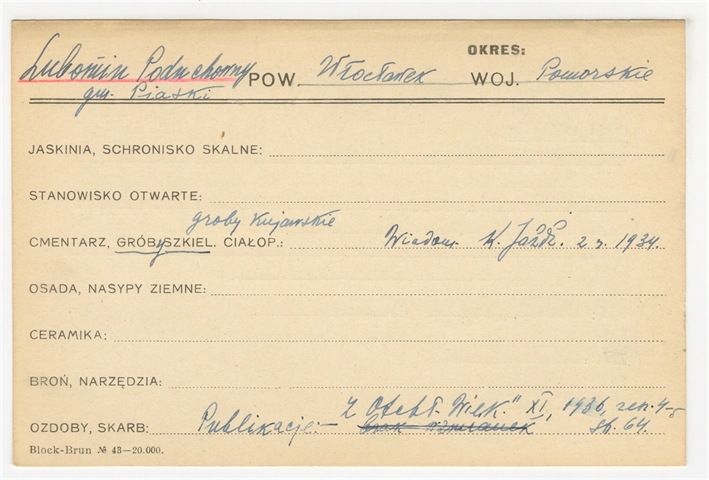 OKRES:
Lubomin Poduchowny POW. Włocławek WOJ. Pomorskie
gm. Piaski
JASKINIA, SCHRONISKO SKALNE:
STANOWISKO OTWARTE:
groby kujawskie
CMENTARZ, GRÓBY SZKIEL. CIAŁOP.: Wiadom. K. Jażdż. z r. 1934
OSADA, NASYPY ZIEMNE:
CERAMIKA:
BROŃ, NARZĘDZIA:
"Z Otchł. Wiek." XI, 1936, zesz. 4-5
OZDOBY, SKARB: Publikacje:- brak wzmianek st. 64.
Block-Brun № 43—20.000.